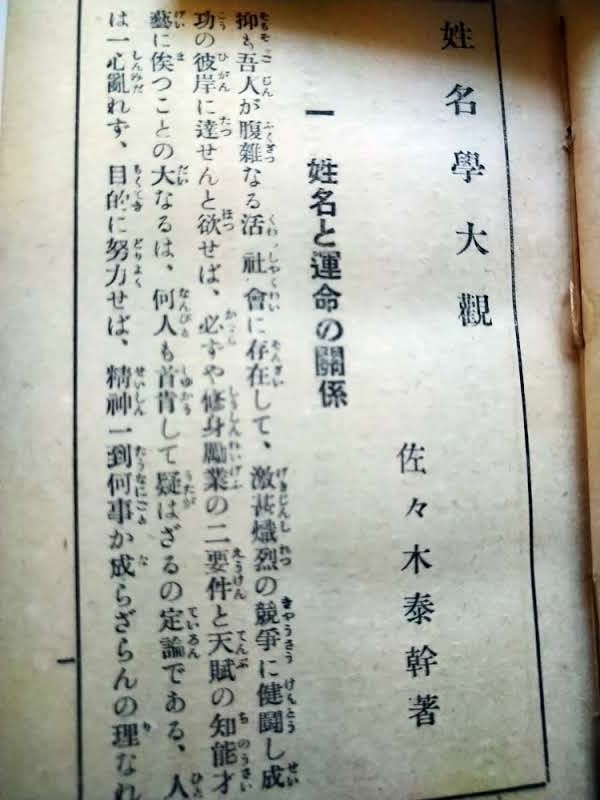 姓名學大觀
佐々木泰幹著
一 姓名と運命の關係
抑も吾人が腹雜なる活社會に存在して、激甚熾烈の競爭に健鬪し成
功の彼岸に達せんと欲せば、必ずや修身勵業の二要件と天賦の知能才
藝に俟つことの大なるは、何人も首肯して疑はざるの定論である、人
は一心亂れず、目的に努力せば、精神一到何事か成らざらんの理なれ
一